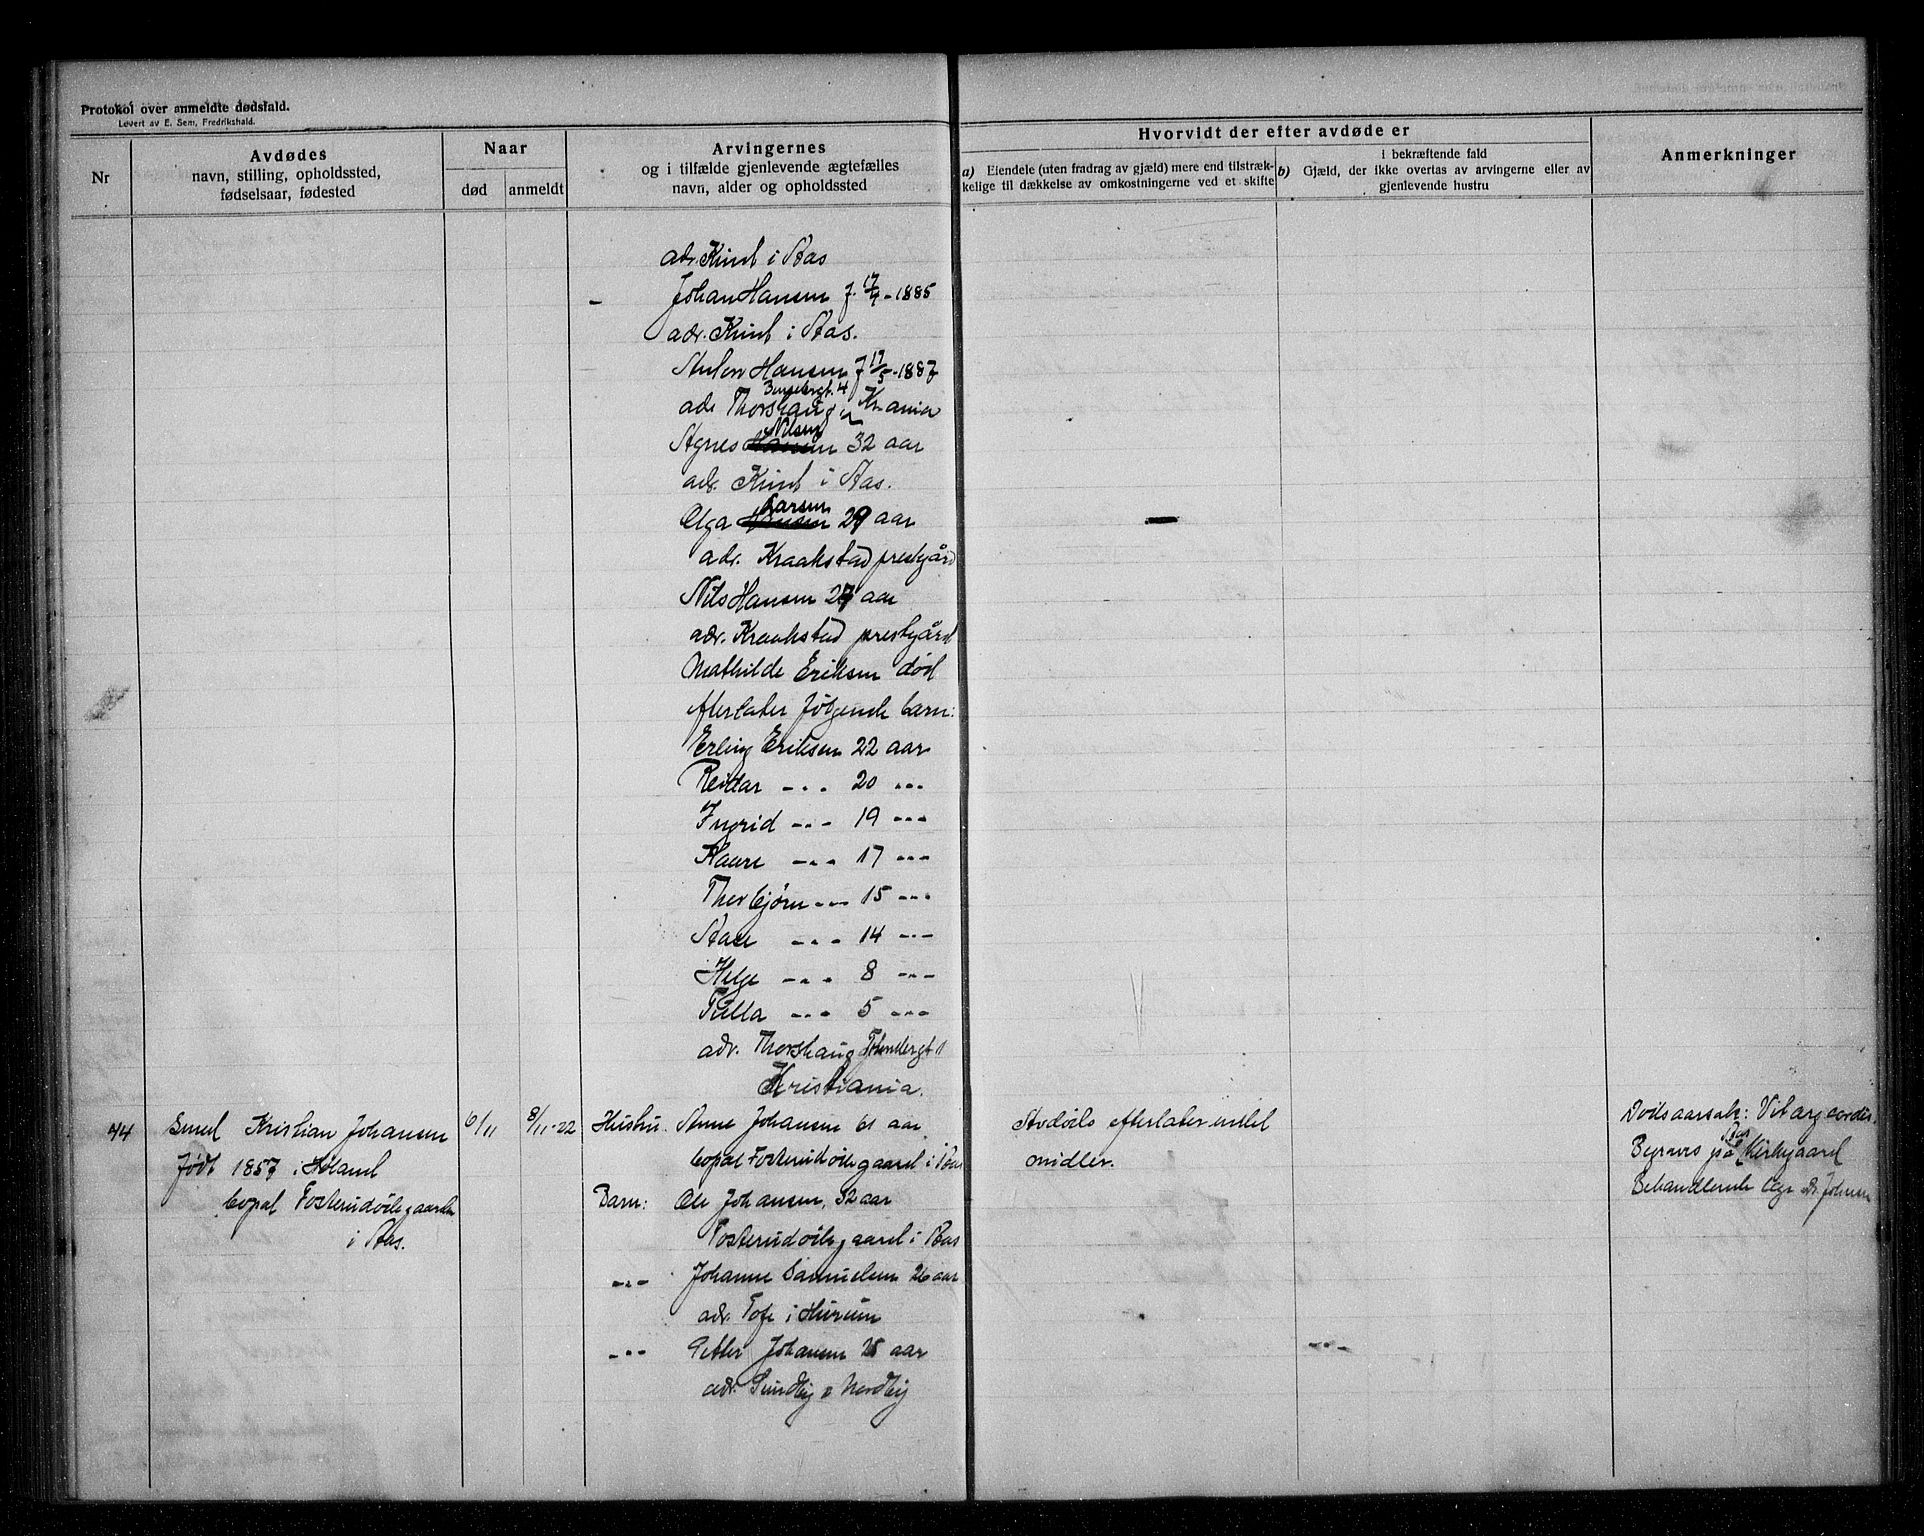 Protokol over anmeldte dødsfald.
Levert av E. Sem, Fredrikshald.
Nr
Avdødes
navn, stilling, opholdssted,
fødselsaar, fødested
Naar
død
anmeldt
Arvingernes
og i tilfælde gjenlevende ægtefælles
navn, alder og opholdssted
Hvorvidt der efter avdøde er
a) Eiendele (uten fradrag av gjæld) mere end tilstræk-
kelige til dækkelse av omkostningerne ved et skifte
i bekræftende fald
b) Gjæld, der ikke overtas av arvingerne eller av
gjenlevende hustru
Anmerkninger
adr. i Aas
Johan Hansen f. 17/4-1885
adr. i Aas.
Anton Hansen f 17/5-1887
adr Thorshaug Kr.ania
Agnes Nilsen 32 aar
adr. i Aas.
Olga Larsen 29 aar
adr. Kraakstad prestegård
Nils Hansen 27 aar
adr. Kraakstad prestegård
Mathilde Eriksen død
efterlater følgende barn:
Erling Eriksen 22 aar
Reidar -"- 20 -"-
Ingrid -"- 19 -"-
Kaare -"- 17 -"-
Thorbjørn -"- 15 -"-
Aase -"- 14 -"-
Helge -"- 8 -"-
Tulla -"- 5 -"-
adr. Thorshaug
Kristiania.
44
Kristian Johansen
født 1857 i Høland
bopæl Fosterudødegaarden
i Aas.
6/11
8/11-22
Hustru. Anne Johansen 61 aar
bopæl Fosterudødegaard i Aas
Barn: Ole Johansen, 32 aar
Fosterudødegaard i Aas
-"- Johanne Samuelsen 26 aar
adr. Tofte i Hurum
-"- Petter Johansen 25 aar
adr. Sundby i Nordby
Avdøde efterlater intet
midler.
-"-
Dødsaarsak:
Begraves på Aas Kirkegaard
Behandlende læge Dr. Johnsen